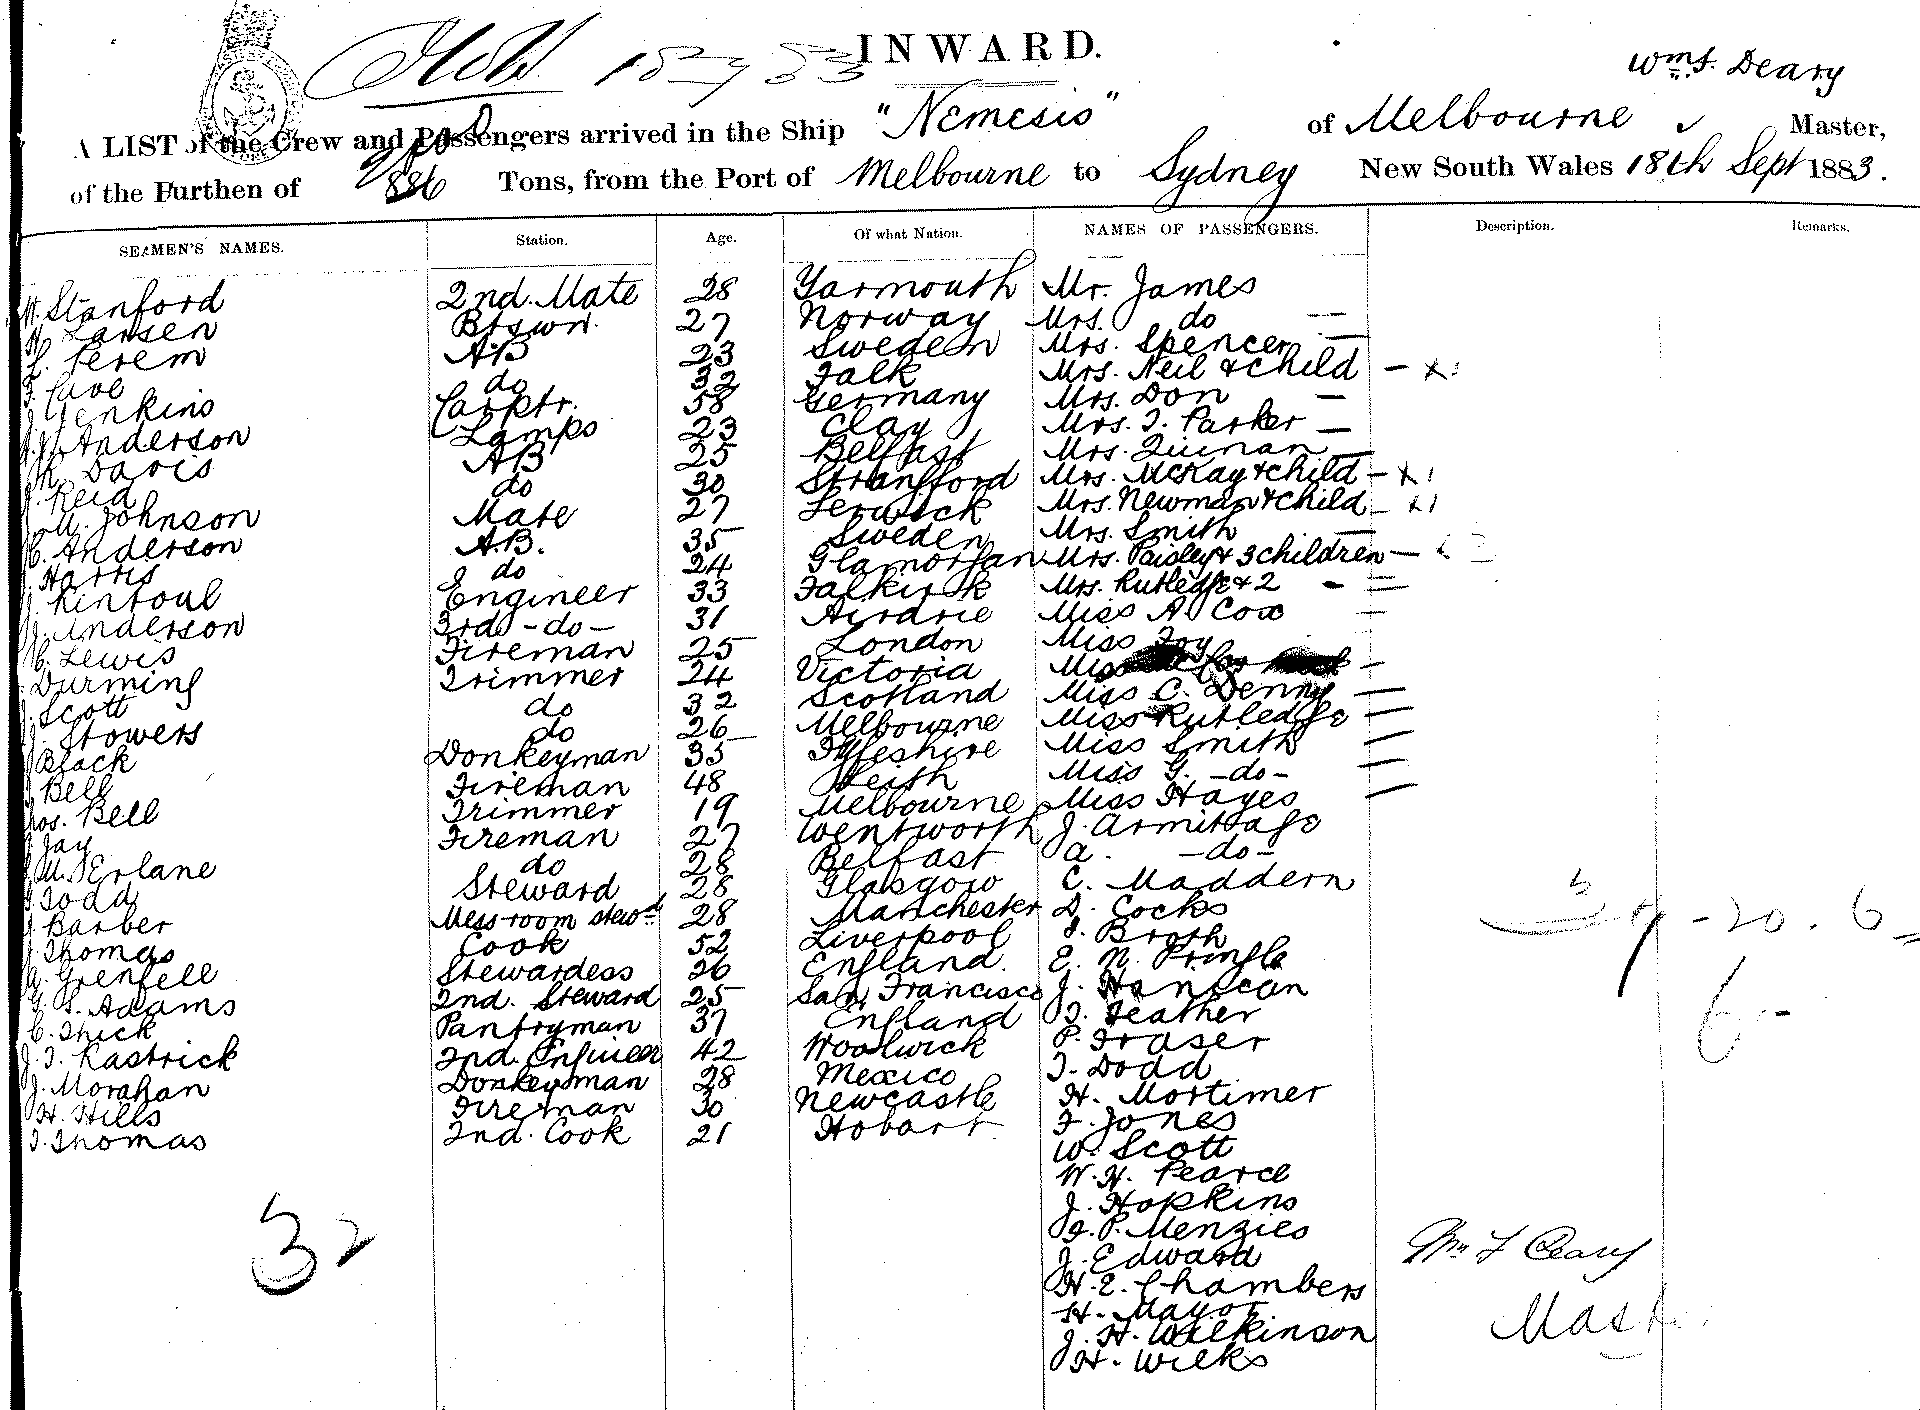 INWARD.
Wm. J. Deary
A LIST of the Crew and Passengers arrived in the Ship "Nemesis" of Melbourne Master,
of the Burthen of 886 Tons, from the Port of Melbourne to Sydney New South Wales 18th Sept 1883.
SEAMEN'S NAMES. Station. Age. Of what Nation. NAMES OF PASSENGERS. Description. Remarks.
Stanford 2nd. Mate 28 Yarmouth Mr. James
Larsen Btswn. 27 Norway Mrs. do —
Ferem A.B 23 Sweden Mrs. Spencer —
F. Cave do 32 Falk Mrs. Neil & child —
J. Jenkins Carptr. 58 Germany Mrs. Don —
Anderson Lamps 23 Clay Mrs. T. Parker —
Davis AB 25 Belfast Mrs. Quinan —
J. Reid do 30 Strangford Mrs. McKay & child —
M. Johnson Mate 27 Lerwick Mrs. Newman & child —
Anderson A.B. 35 Sweden Mrs. Smith —
Harris do 24 Glamorgan Mrs. Paisley & 3 children —
J. Rintoul Engineer 33 Falkirk Mrs. Rutledge & 2 -
J. Anderson 3rd -do- 31 Airdrie Miss A. Cox
Lewis Fireman 25 London Miss Joy
Durming Trimmer 24 Victoria Miss
J. Scott do 32 Scotland Miss C. Denny —
J. Stowers do 26 Melbourne Miss Rutledge —
Black Donkeyman 35 Fifeshire Miss Smith —
J. Bell Fireman 48 Leith Miss G. -do- —
Jos. Bell Trimmer 19 Melbourne Miss Hayes —
J. Jay Fireman 27 Wentworth J. Armitage
McErlane do 28 Belfast A. -do-
J. Todd Steward 28 Glasgow C. Maddern
J. Barber Mess-room stewd 28 Manchester D. Cocks
J. Thomas Cook 52 Liverpool J. Broth
Grenfell Stewardess 26 England. E. N. Pringle
G. S. Adams 2nd. Steward 25 San Francisco J. Hanigan
C. Thick Pantryman 37 England T. Feather
J. T. Rastrick 2nd. Engineer 42 Woolwick P. Fraser
J. Morahan Donkeyman 28 Mexico T. Dodd
H. Hills Fireman 30 Newcastle H. Mortimer
T. Thomas 2nd. Cook 21 Hobart F. Jones
W. Scott
W. H. Pearce
J. Hopkins
J. P. Menzies
J. Edward
H. E. Chambers
H. Mayor
J. H. Wilkinson
H. Wilks
32